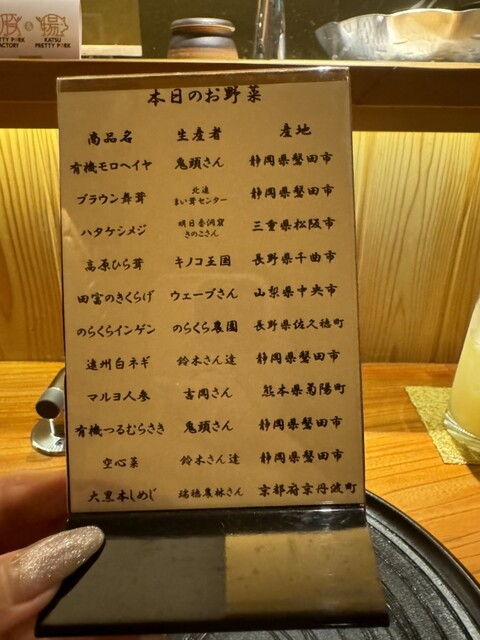 PRETTY PORK FACTORY
揚
KATSU PRETTY PORK
本日のお野菜
商品名 生産者 産地
有機モロヘイヤ 鬼頭さん 静岡県磐田市
ブラウン舞茸 北遠まい茸センター 静岡県磐田市
ハタケシメジ 明日香洞窟きのこさん 三重県松阪市
高原ひら茸 キノコ王国 長野県千曲市
田富のきくらげ ウェーブさん 山梨県中央市
のらくらインゲン のらくら農園 長野県佐久穂町
遠州白ネギ 鈴木さん達 静岡県磐田市
マルヨ人参 吉岡さん 熊本県菊陽町
有機つるむらさき 鬼頭さん 静岡県磐田市
空心菜 鈴木さん達 静岡県磐田市
大黒本しめじ 瑞穂農林さん 京都府京丹波町